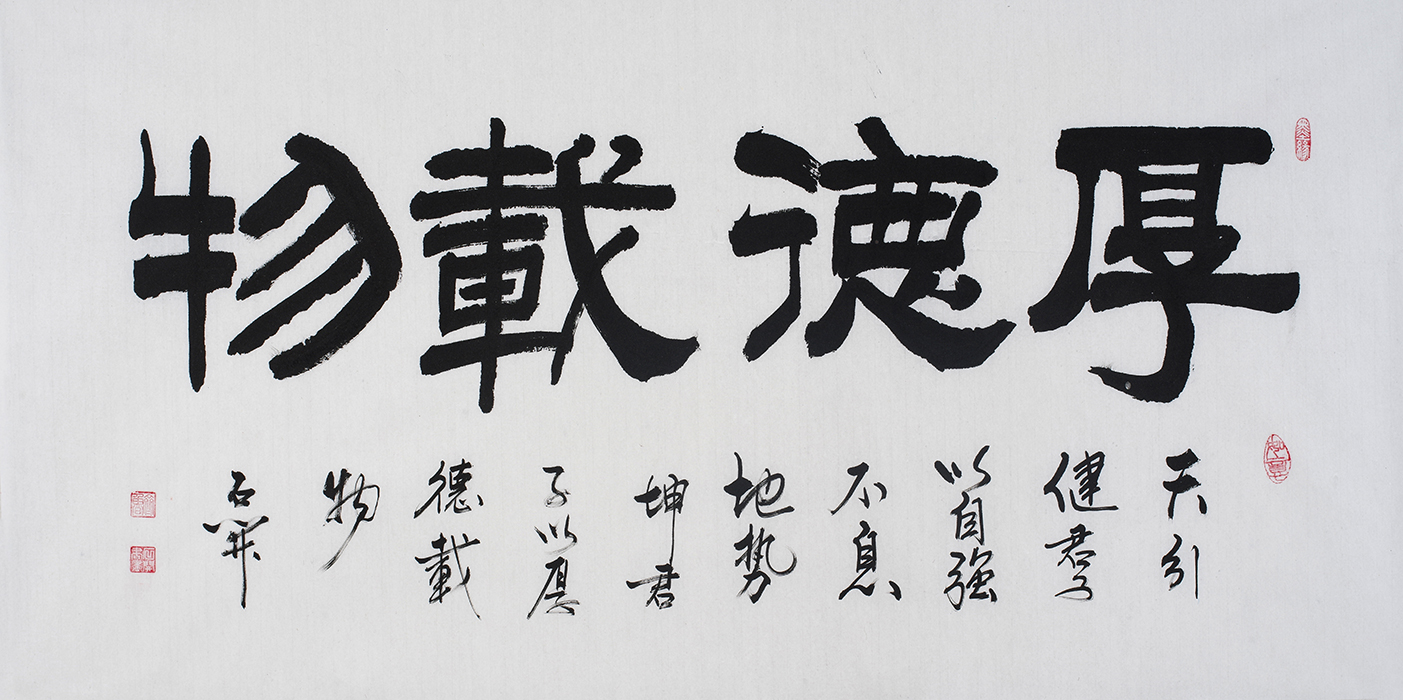 厚德載物
天行
健君子
以自強
不息
地势
坤君
子以厚
德載
物
石開